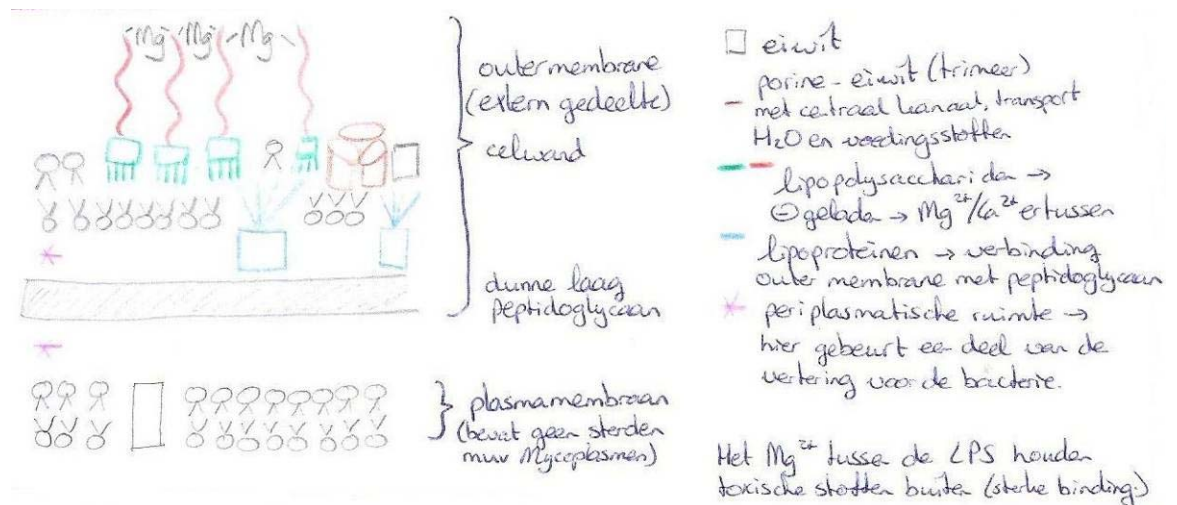 Mg Mg Mg
outer membrane
(extern gedeelte)
celwand
dunne laag
peptidoglycaan
plasmamembraan
(bevat geen sterolen
muv Mycoplasmen)
eiwit
porine-eiwit (trimeer)
met centraal kanaal, transport
H₂O en voedingsstoffen
lipopolysacchariden →
⊖ geladen → Mg²⁺/Ca²⁺ ertussen
lipoproteïnen → verbinding
outer membrane met peptidoglycaan
periplasmatische ruimte →
hier gebeurt een deel van de
vertering voor de bacterie.
Het Mg²⁺ tussen de LPS houden
toxische stoffen buiten (sterke binding.)